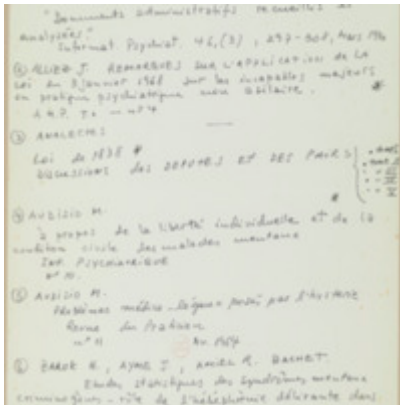 "Documents administratifs recueillis et
analysés."
Informat. Psychiat. 46, (3), 297-308, Mars
② ALLIEZ J. REMARQUES SUR L'APPLICATION DE LA
Loi du 3 janvier 1968 sur les incapables majeurs
en pratique psychiatrique
A.M.P. T. n° 4
③ ANALECTES
Loi de 1838 *
Discussions des DEPUTES ET DES PAIRS
④ AUDISIO M.
à propos de la liberté individuelle et de la
condition civile des malades mentaux
INF. PSYCHIATRIQUE
n°
⑤ AUDISIO M.
Problèmes médico-légaux posés par l'hystérie
Revue du Praticien
n° 11
⑥ BARUK H., AYME J., AMIEL R. BACHET.
Etudes statistiques des syndrômes mentaux
criminogènes - rôle de l' délirante dans